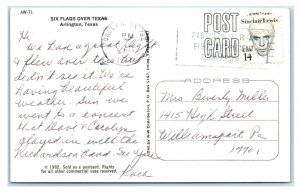 AW-71
SIX FLAGS OVER TEXAS
Arlington, Texas
Hi
We had a great flight
flew over this but
didn't see it. We're
having beautiful
weather. Sun we
went to a concert
that Dave & Carolyn
played in with the
Richardson Band. See you
© 1982. Sold as a postcard. Rights
for all other commercial uses reserved.
PM
POST
CARD
Sinclair Lewis
14
ADDRESS
Mrs. Beverly Miller
1415 High Street
Williamsport Pa
17701